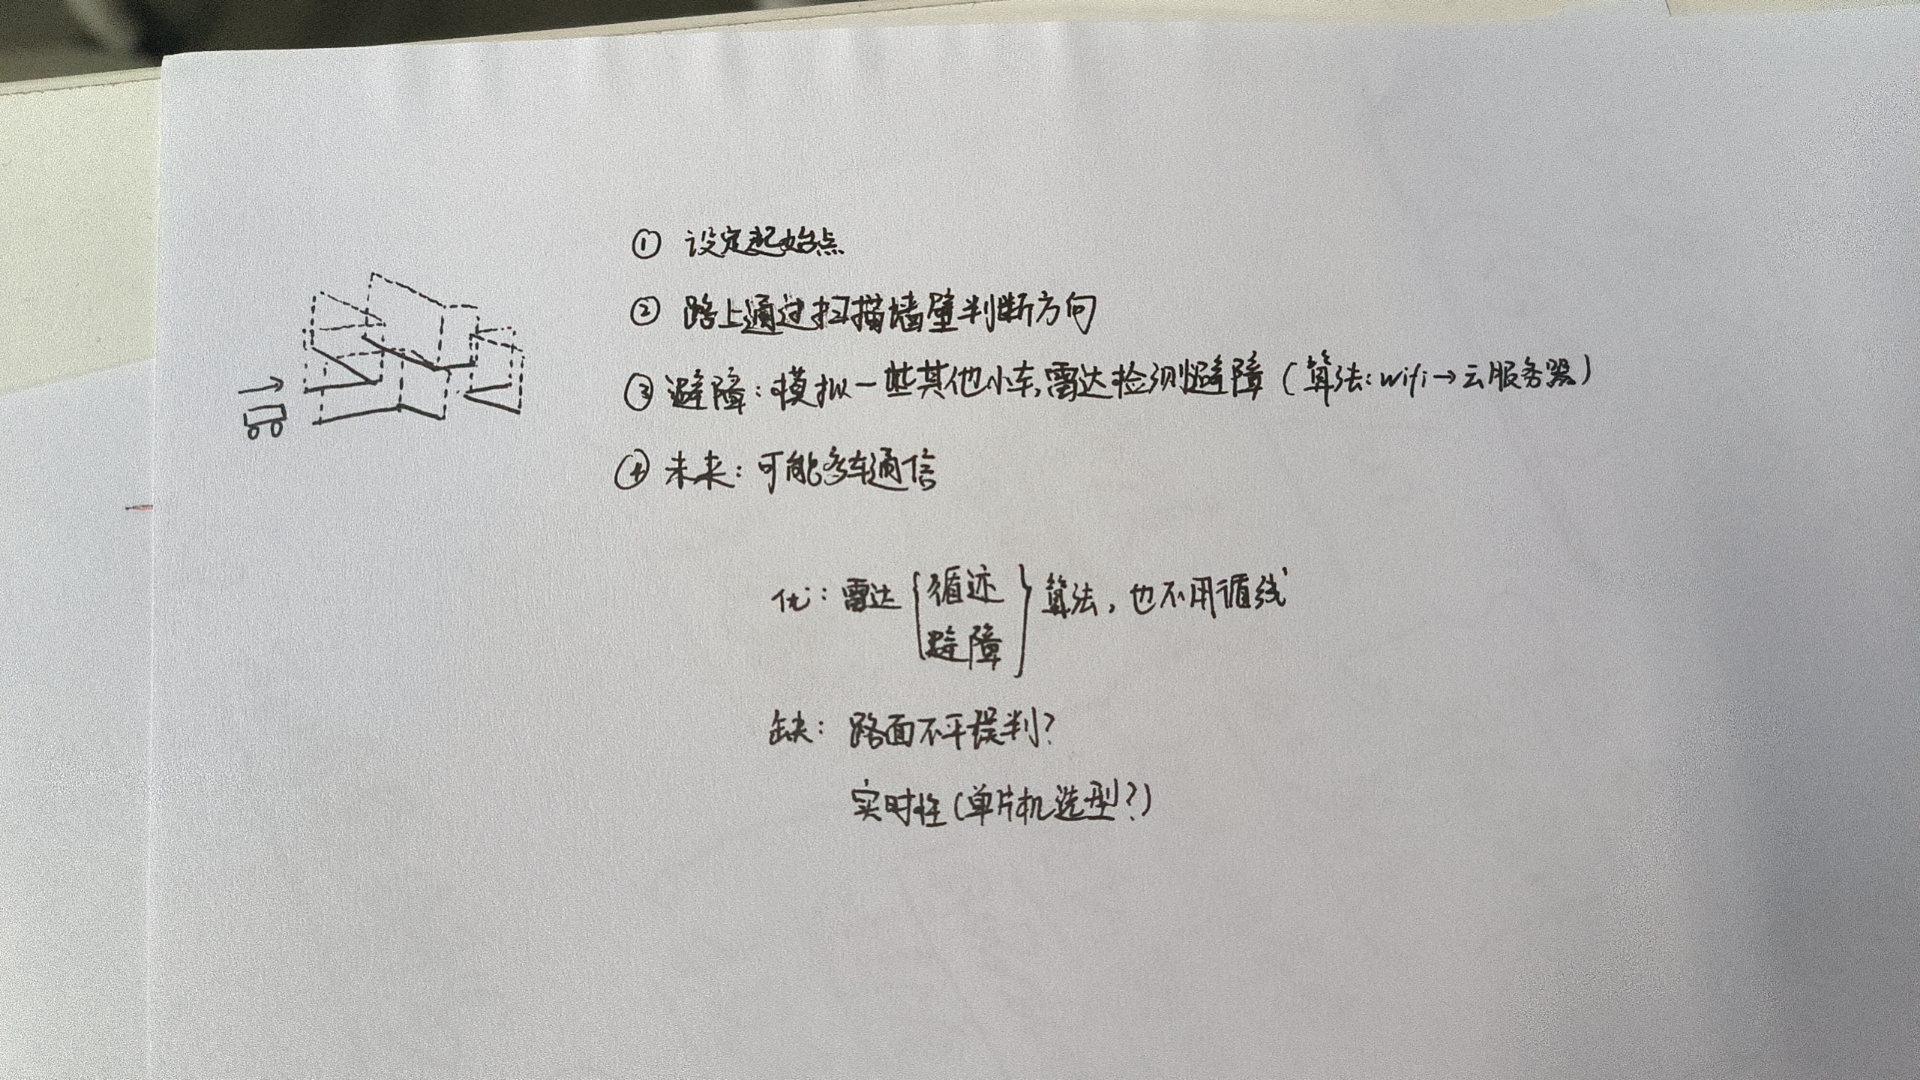 ① 设定起始点
② 路上通过扫描墙壁判断方向
③ 避障：模拟一些其他小车,雷达检测避障（算法：wifi→云服务器）
④ 未来：可能多车通信
优：雷达{循迹 避障}算法，也不用循线
缺：路面不平误判？
实时性（单片机选型？）